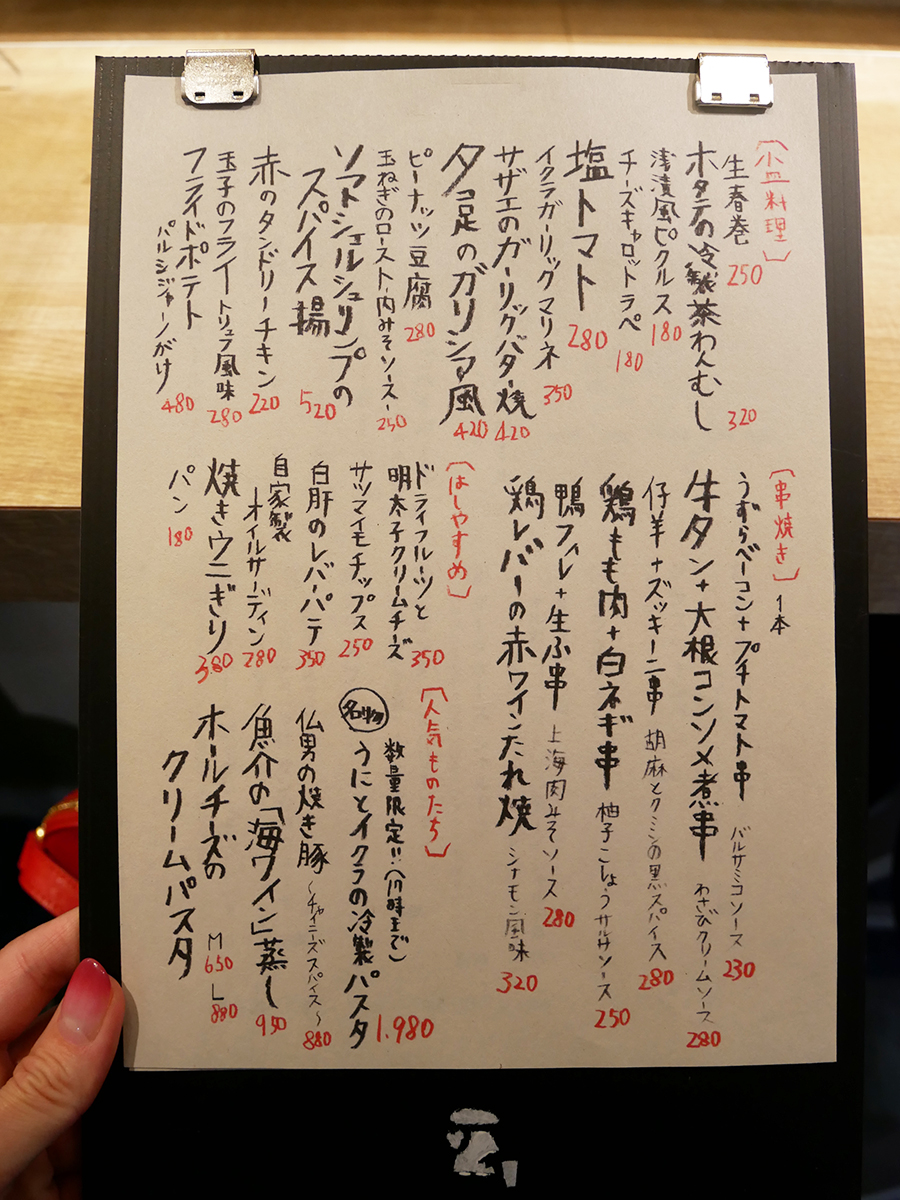 〔小皿料理〕
生春巻 250
ホタテの冷製茶わんむし 320
浅漬風ピクルス 180
チーズキャロットラペ 180
塩トマト 280
イクラガーリックマリネ 350
サザエのガーリックバター焼 420
タコ足のガリシア風 420
ピーナッツ豆腐 280
玉ねぎのロースト、肉みそソース 250
ソフトシェルシュリンプの
スパイス揚 520
赤のタンドリーチキン 220
玉子のフライ トリュフ風味 280
フライドポテト
パルミジャーノがけ 480
〔串焼き〕 1本
うずらベーコン+プチトマト串 バルサミコソース 230
牛タン+大根コンソメ煮串 わさびクリームソース 280
仔羊+ズッキーニ串 胡麻とクミンの黒スパイス 280
鶏もも肉+白ネギ串 柚子こしょうサルサソース 250
鴨フィレ+生ふ串 上海肉みそソース 280
鶏レバーの赤ワインたれ焼 シナモン風味 320
〔はしやすめ〕
ドライフルーツと
明太子クリームチーズ 350
サツマイモチップス 250
白肝のレバーパテ 350
自家製
オイルサーディン 280
焼きウニぎり 380
パン 180
〔人気ものたち〕
数量限定!!(八時まで)
名物 うにとイクラの冷製パスタ 1.980
仏男の焼き豚 〜チャイニーズスパイス〜 880
魚介の「海ワイン」蒸し 950
ホールチーズの
クリームパスタ
M 650
L 880